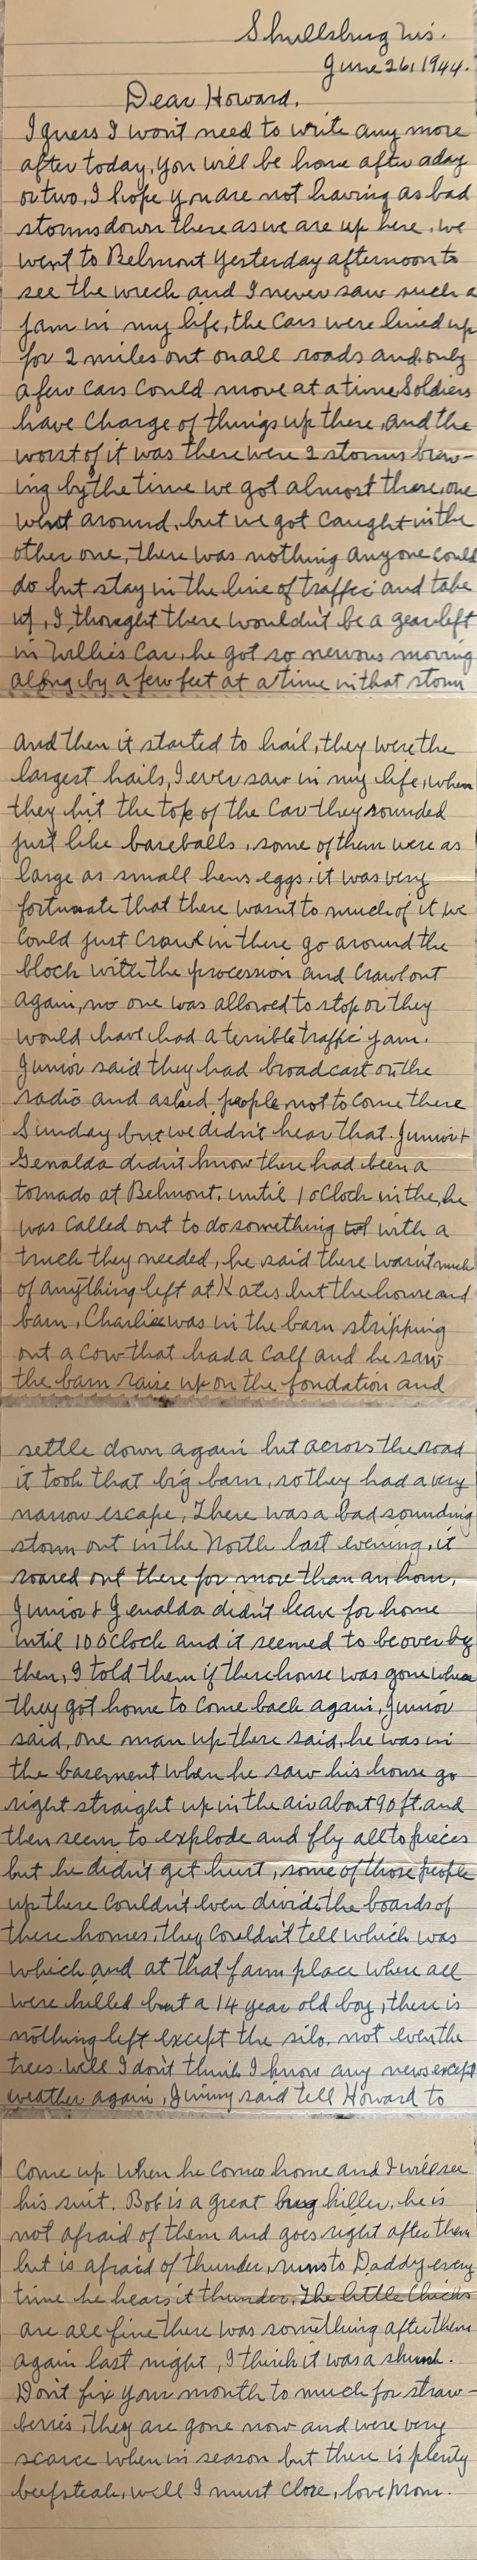 Shullsburg Wis.
June 26, 1944.
Dear Howard,
I guess I won't need to write any more
after today, you will be home after a day
or two, I hope you are not having as bad
storms down there as we are up here, we
went to Belmont Yesterday afternoon to
see the wreck and I never saw such a
jam in my life, the cars were lined up
for 2 miles out on all roads and only
a few cars could move at a time Soldiers
have charge of things up there, and the
worst of it was there were 2 storms brew-
ing by the time we got almost there, one
went around, but we got caught in the
other one, there was nothing anyone could
do but stay in the line of traffic and take
it, I thought there wouldn't be a gear left
in Willie's car, he got so nervous moving
along by a few feet at a time in that storm
and then it started to hail, they were the
largest hails, I ever saw in my life, when
they hit the top of the car they sounded
just like baseballs, some of them were as
large as small hens eggs, it was very
fortunate that there wasn't to much of it we
could just crawl in there go around the
block with the procession and crawl out
again, no one was allowed to stop or they
would have had a terrible traffic jam.
Junior said they had broadcast on the
radio and asked people not to come there
Sunday but we didn't hear that. Junior +
Genalda didn't know there had been a
tornado at Belmont, until 1 oClock in the, he
was called out to do something with a
truck they needed, he said there wasn't much
of anything left at Kates but the house and
barn, Charlie was in the barn stripping
out a cow that had a calf and he saw
the barn raise up on the fondation and
settle down again but across the road
it took that big barn, so they had a very
narrow escape, There was a bad sounding
storm out in the North last evening, it
roared out there for more than an hour,
Junior + Genalda didn't leave for home
until 10 oClock and it seemed to be over by
then, I told them if there house was gone when
they got home to come back again, Junior
said, one man up there said, he was in
the basement when he saw his house go
right straight up in the air about 90 ft. and
then seem to explode and fly all to pieces
but he didn't get hurt, some of those people
up there couldn't even divide the boards of
there homes, they couldn't tell which was
which and at that farm place where all
were killed but a 14 year old boy, there is
nothing left except the silo, not even the
trees. Well I don't think I know any news except
weather again, Jimmy said tell Howard to
come up when he comes home and I will see
his suit. Bob is a great bug killer, he is
not afraid of them and goes right after them
but is afraid of thunder, runs to Daddy every
time he hears it thunder, The little Chicks
are all fine there was something after them
again last night, I think it was a skunk.
Don't fix your mouth to much for straw-
berries, they are gone now and were very
scarce when in season but there is plenty
beefsteak, well I must close, love Mom.